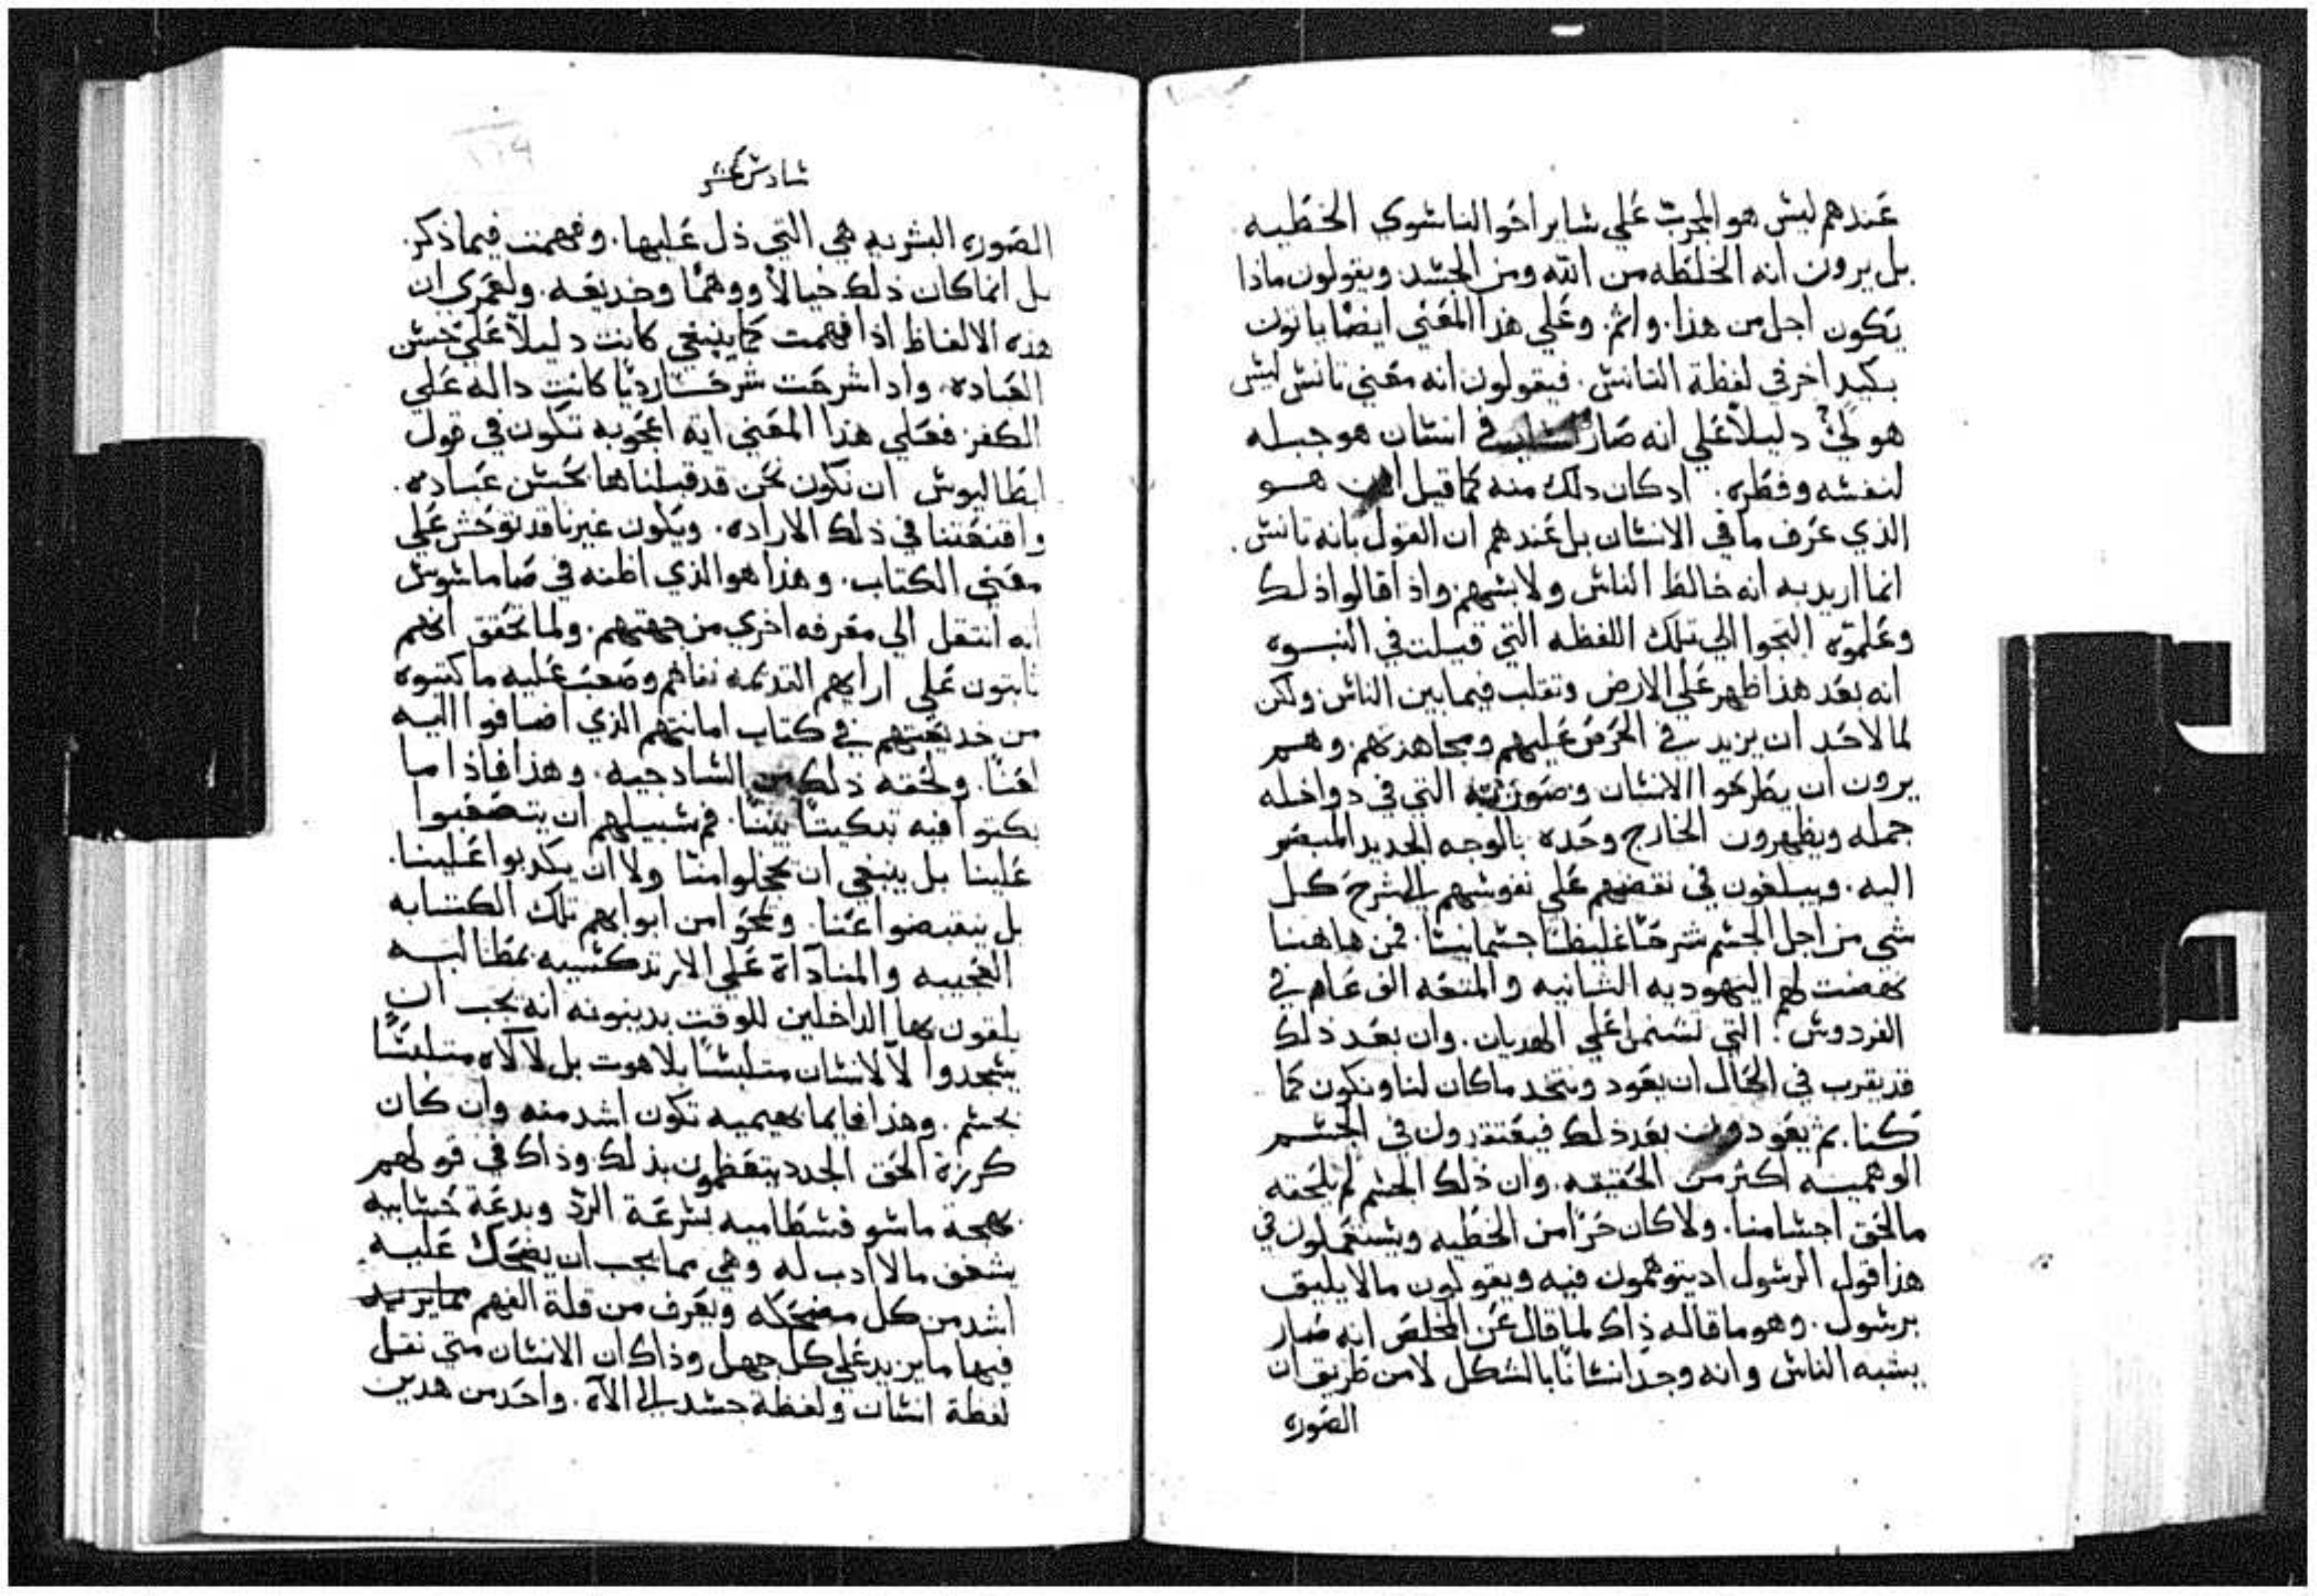 عندهم ليش هو المجرب علي شاير اخوالناشوي الخطيه
بل يرون انه الخلطه من الله ومن الجشد. ويقولون ماذا
يكون اجل من هذا. واثم. وعلي هذا المعني ايضا ياتون
بكيد اخر في لفظة التانش. فيقولون انه معني تانش ليش
هو دليلا علي انه صار في انشان هو جبله
لنفشه وفطره. ادكان دلك منه كما قيل هو
الذي عرف ما في الانشان بل عندهم ان القول بانه تانش.
انما اريد به انه خالط الناش ولابشهم. واذا قالوا ذلك
وعلموه التجوا الي تلك اللفظه التي قيلت في النبوه
انه بعد هذا ظهر علي الارض وتقلب فيما بين الناش ولكن
لما لاحد ان يزيد في الحرص عليهم ومجاهدتهم. وهم
يرون ان يطرحوا الانشان وصورته التي في دواخله
جمله ويظهرون الخارج وحده بالوجه الجديد المبصر
اليه. ويبلغون في نقضهم علي نفوشهم الي شرح كل
شي من اجل الجشم شرحا غليظا جشمانيا. فمن هاهنا
نهضت لهم اليهوديه الثانيه والمتعه الف عام في
الفردوش. التي تشتمل علي الهديان. وان بعد ذلك
قد يقرب في الحال ان يعود ويتخد ماكان لنا ونكون كما
كنا. ثم يعودون بعد ذلك فيعتقدون في الجشم
الوهميه اكثر من الحقيقه. وان ذلك الجشم لم يلحقه
مالحق اجشامنا. ولا كان حرا من الخطيه ويشتعملون في
هذا قول الرشول اد يتوهمون فيه ويقولون مالا يليق
برشول. وهو ما قاله ذاك لما قال عن المخلص انه صار
بشبه الناش وانه وجد انشانا بالشكل لا من طريق ان
الصوره
شادش عشر
الصوره البشريه هي التي دل عليها. وفهمت فيما ذكر.
بل انما كان ذلك خيالا ووهما وخديعه. ولعمري ان
هذه الالفاظ اذا فهمت كما ينبغي كانت دليلا علي حشن
العباده. واداشرحت شرحا رديا كانت داله علي
الكفر. فعلي هذا المعني اية اعجوبه تكون في قول
ابطاليوش ان نكون نحن قد قبلناها بحشن عباده.
واقنعتنا في ذلك الاراده. ويكون غيرنا قد توحش علي
معني الكتاب. وهذا هو الذي اظنه في ضاماشوش
انه انتقل الي معرفه اخري من جهتهم. ولما تحقق انهم
ثابتون علي ارايهم القديمه نفاهم وصعب عليه ما كتبوه
من خديعتهم في كتاب امانتهم الذي اضافوا اليه
لعنا. ولحقه ذلك من الشادجيه. وهذا فاذا ما
بكتوا فيه تبكيتا بينا. فم شبيلهم ان يتصعبوا
علينا بل ينبغي ان يخجلوا منا ولا ان يكدبوا علينا.
بل ينقبضوا عنا. ويمحوا من ابوابهم تلك الكتابه
العجيبه والمناداة علي الارتدكشيه بمطالبه
يلقون بها الداخلين للوقت يدينونه انه يجب ان
يشجدوا لا لانشان متلبشا بلاهوت بل لالاه متلبشا
بجشم. وهذا فايما بهيميه تكون اشد منه وان كان
كررة الحق الجدد يتعظمون بذلك وذاك في قولهم
بهجة ماشو فشطاميه بشرعة الرد وبدعة حشابيه
يشغف مالا ادب له وهي مما يجب ان يضحك عليه
اشد من كل مضحكه ويعرف من قلة الفهم
فيها ما يزيد علي كل جهل وذاك ان الانشان متي نقل
لفظة انشان ولفظة جشد الي الاه. واحد من هدين